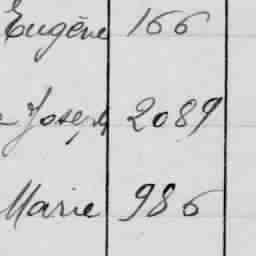 Eugène 166
Joseph 2089
Marie 986